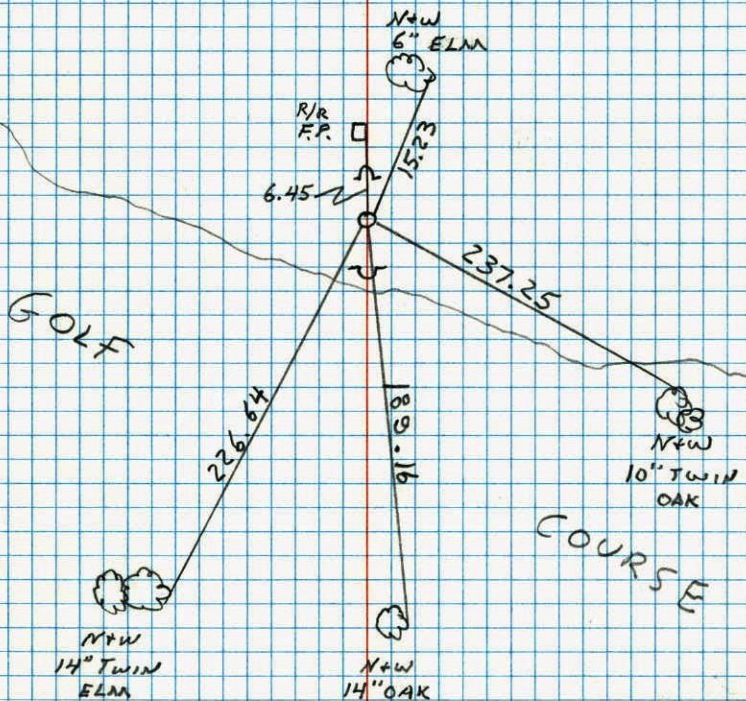 N+W
6" ELM
R/R
F.P.
15.23
6.45
237.25
GOLF
226.64
189.16
N+W
10" TWIN
OAK
COURSE
N+W
14" TWIN
ELM
N+W
14" OAK